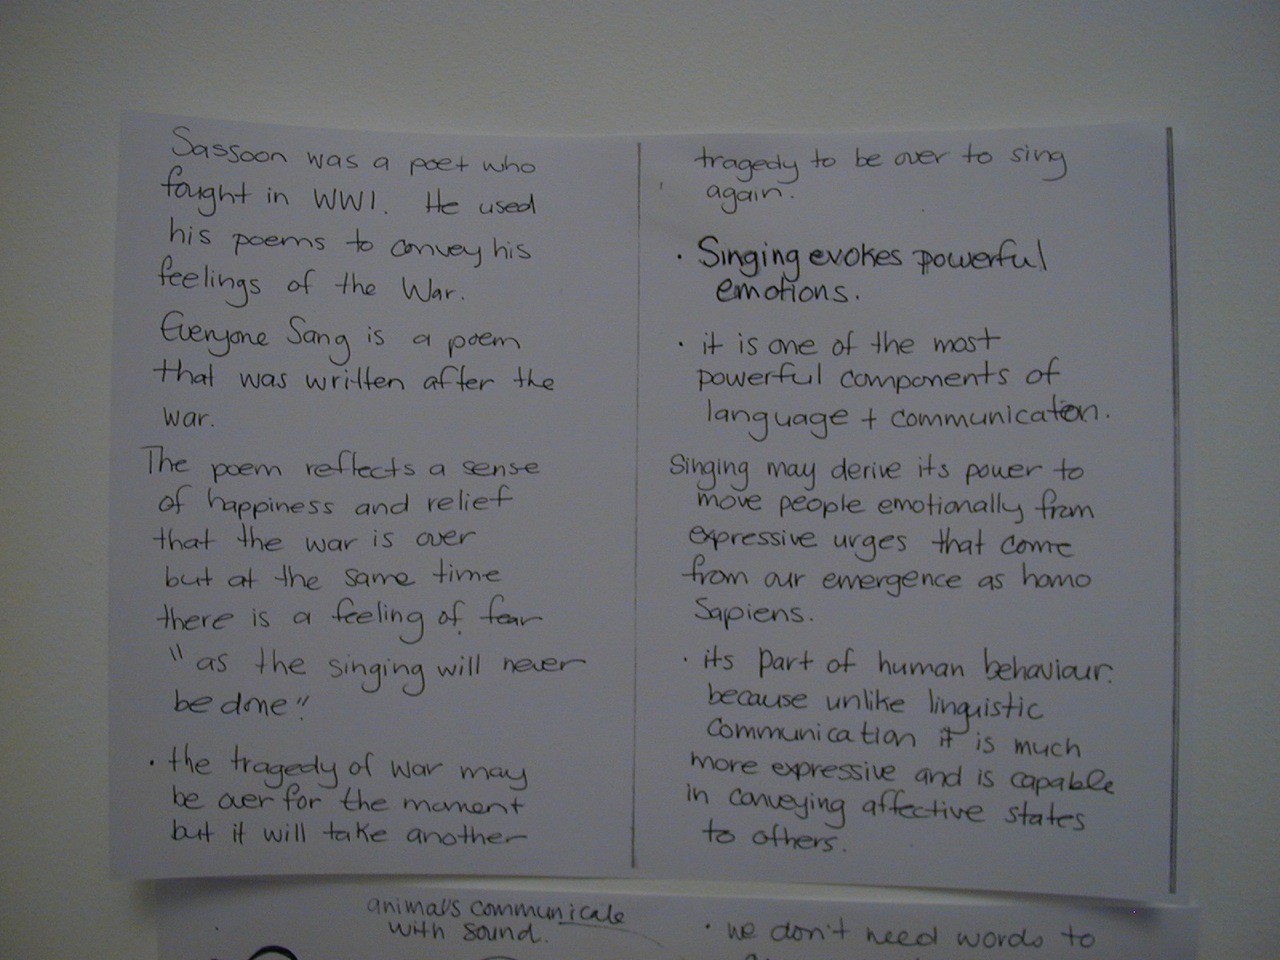 Sassoon was a poet who
fought in WW1. He used
his poems to convey his
feelings of the War.
Everyone Sang is a poem
that was written after the
war.
The poem reflects a sense
of happiness and relief
that the war is over
but at the same time
there is a feeling of fear
"as the singing will never
be done".
• the tragedy of war may
be over for the moment
but it will take another
tragedy to be over to sing
again.
• Singing evokes powerful
emotions.
• it is one of the most
powerful components of
language + communication.
Singing may derive its power to
move people emotionally from
expressive urges that come
from our emergence as homo
Sapiens.
• its part of human behaviour.
because unlike linguistic
communication it is much
more expressive and is capable
in conveying affective states
to others.
animals communicate
with sound.
• we don't need words to